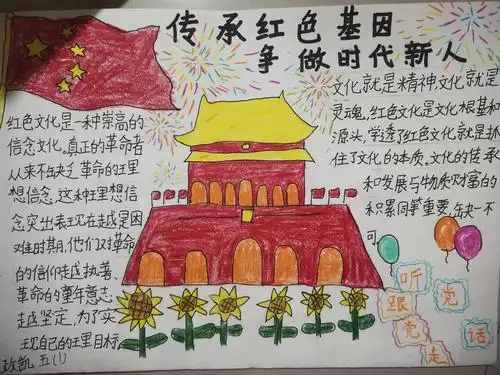 传承红色基因
争做时代新人
红色文化是一种崇高的
信念文化。真正的革命者
从来不缺乏革命的理
想信念,这种理想信
念突出表现在越是困
难时期,他们对革命
的信仰越执著、
革命的意志
越坚定,为了实
现自己的理目标。
政凯 五(1)
文化就是精神,文化就是
灵魂,红色文化是文化根基和
源头,学透了红色文化就是抓
住了文化的本质,文化的传承
和发展与物质财富的
积累同等重要,缺一不
可
听党话
跟党走